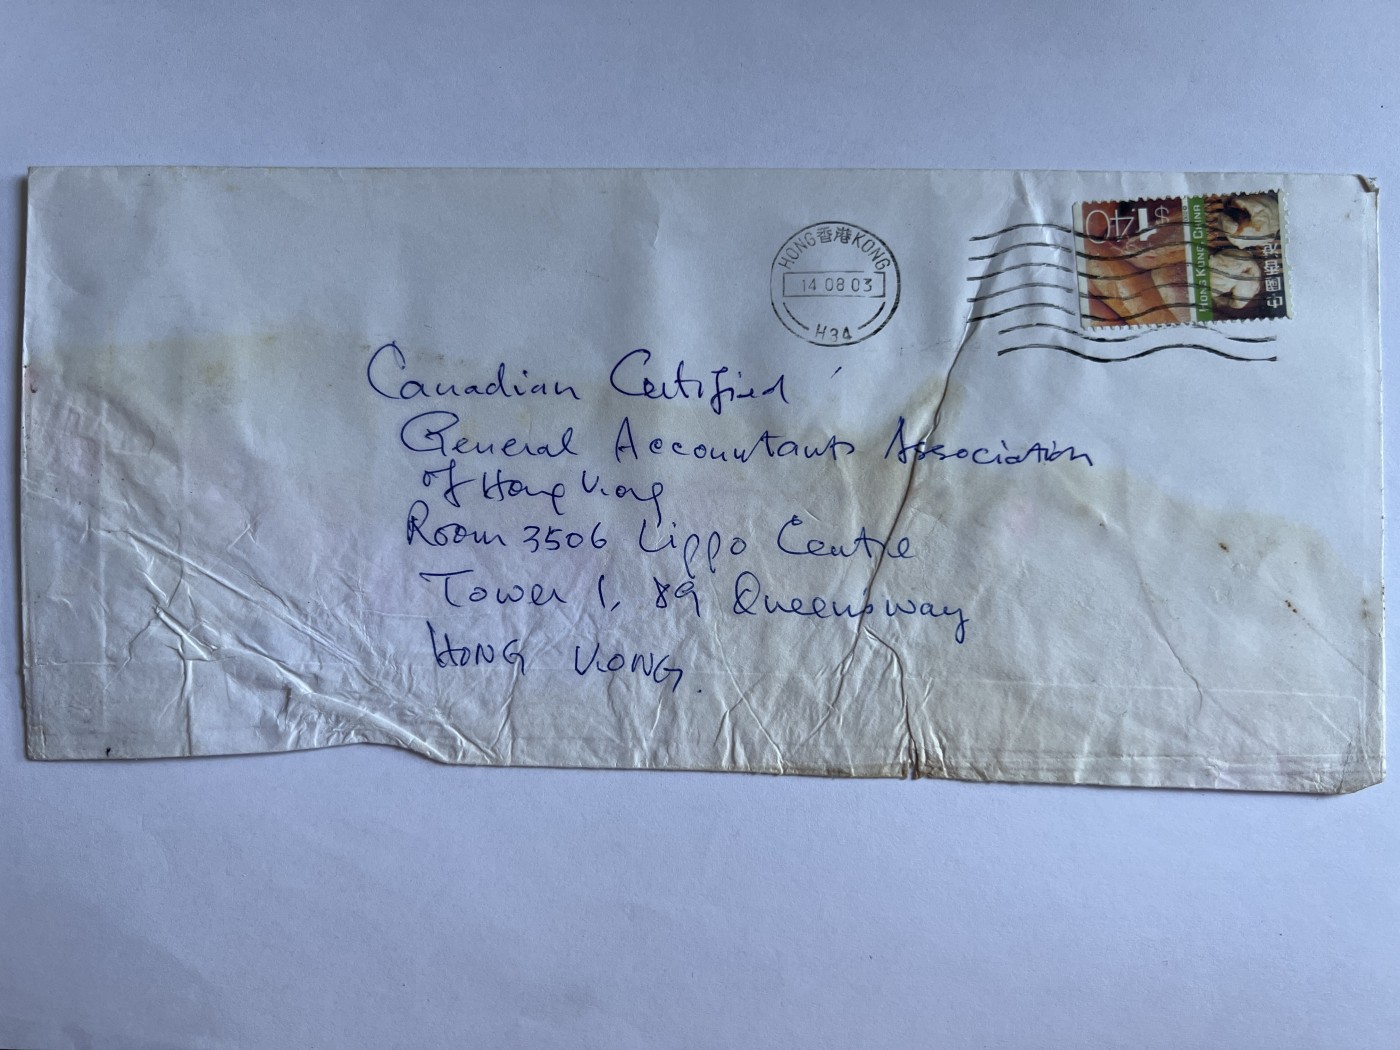 HONG 香港 KONG
14 08 03
H34
$1.40
HONG KONG, CHINA
中國香港
Canadian Certified
General Accountants Association
of Hong Kong
Room 3506 Lippo Centre
Tower 1, 89 Queensway
HONG KONG.